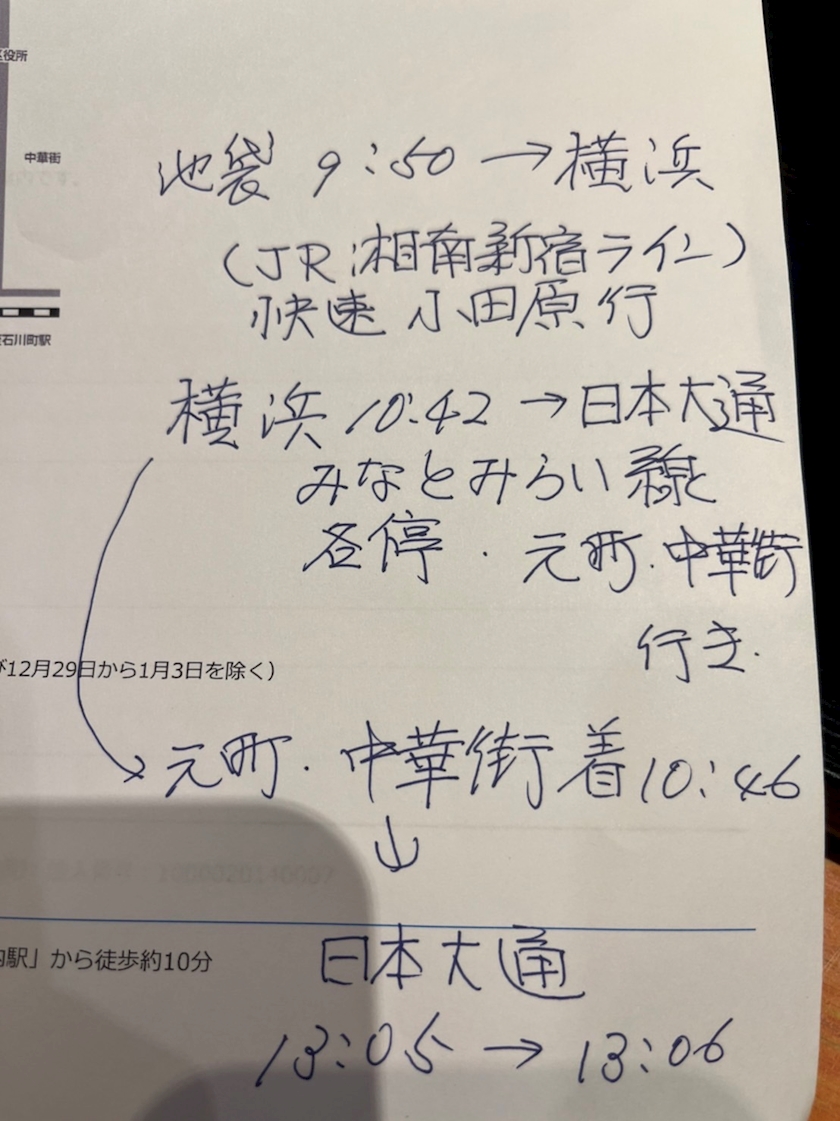 区役所
中華街
池袋 9:50 → 横浜
(JR:湘南新宿ライン)
快速 小田原行
石川町駅
横浜 10:42 → 日本大通
みなとみらい線
各停・元町・中華街
行き.
12月29日から1月3日を除く)
元町・中華街着10:46
↓
駅」から徒歩約10分
日本大通
13:05 → 13:06